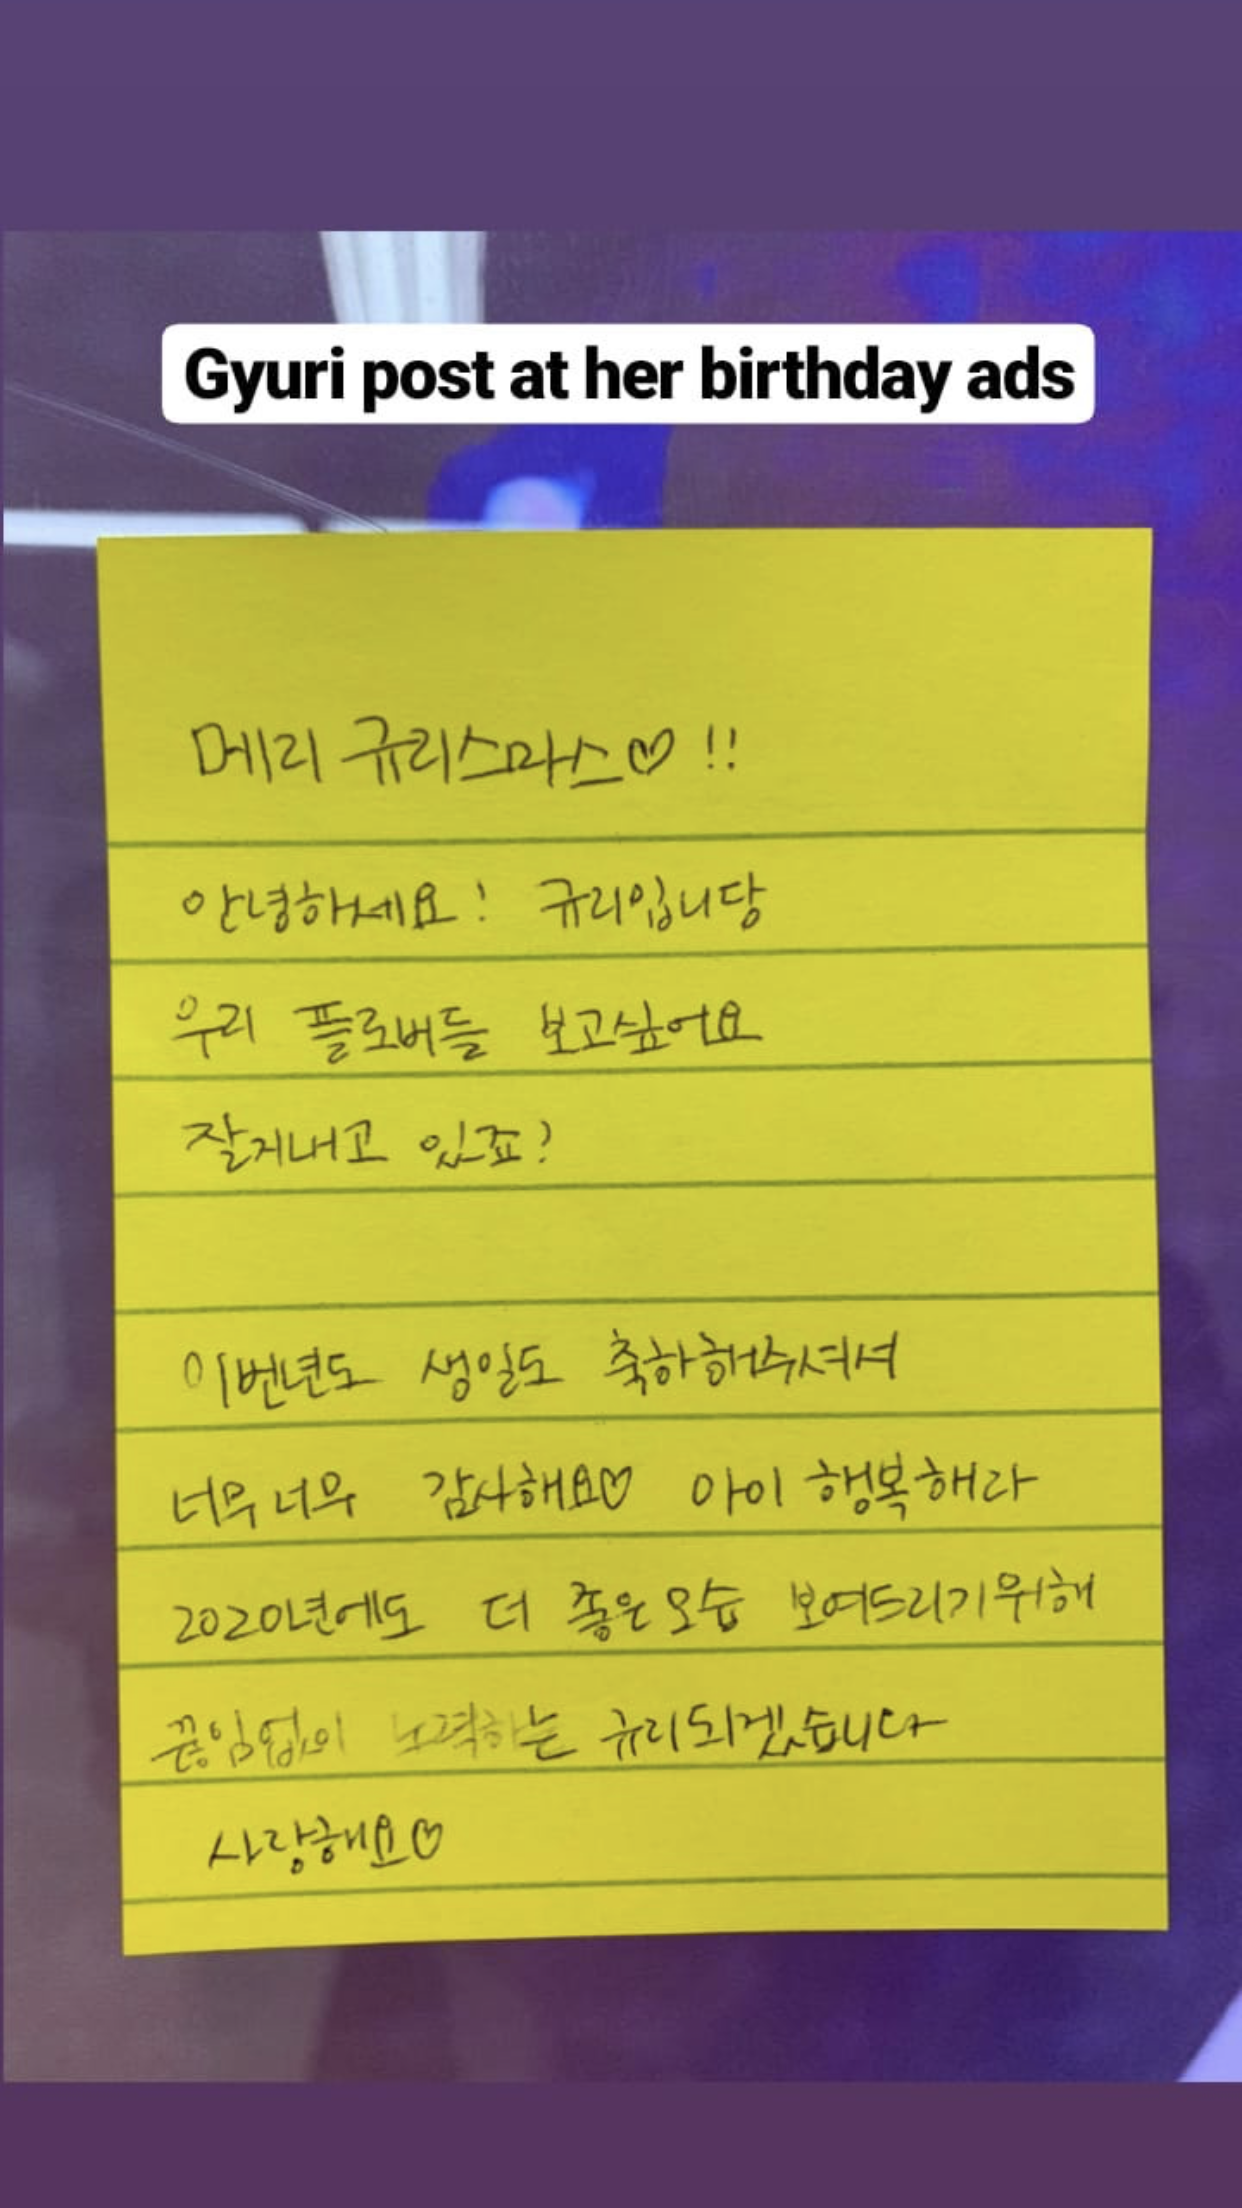 Gyuri post at her birthday ads
메리 규리스마스♡!!
안녕하세요! 규리입니당
우리 플로버들 보고싶어요
잘지내고 있죠?
이번년도 생일도 축하해주셔셔
너무너무 감사해요♡ 아이 행복해라
2020년에도 더 좋은모습 보여드리기위해
끊임없이 노력하는 규리되겠습니다
사랑해요♡